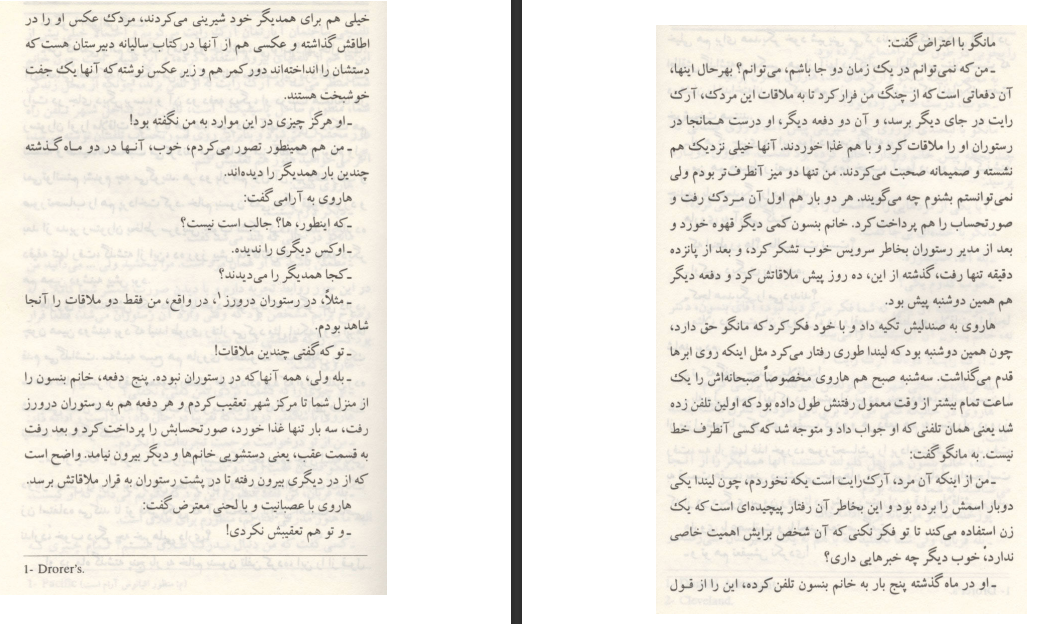 خیلی هم برای همدیگر خود شیرینی می‌کردند، مردک عکس او را در
اطاقش گذاشته و عکسی هم از آنها در کتاب سالیانه دبیرستان هست که
دستشان را انداخته‌اند دور کمر هم و زیر عکس نوشته که آنها یک جفت
خوشبخت هستند.
ـ او هرگز چیزی در این موارد به من نگفته بود!
ـ من هم همینطور تصور می‌کردم، خوب، آنها در دو ماه گذشته
چندین بار همدیگر را دیده‌اند.
هاروی به آرامی گفت:
ـ که اینطور، ها؟ جالب است نیست؟
ـ اوکس دیگری را ندیده.
ـ کجا همدیگر را می‌دیدند؟
ـ مثلاً، در رستوران درورز۱، در واقع، من فقط دو ملاقات را آنجا
شاهد بودم.
ـ تو که گفتی چندین ملاقات!
ـ بله ولی، همه آنها که در رستوران نبوده. پنج دفعه، خانم بنسون را
از منزل شما تا مرکز شهر تعقیب کردم و هر دفعه هم به رستوران درورز
رفت، سه بار تنها غذا خورد، صورتحسابش را پرداخت کرد و بعد رفت
به قسمت عقب، یعنی دستشویی خانم‌ها و دیگر بیرون نیامد. واضح است
که از در دیگری بیرون رفته تا در پشت رستوران به قرار ملاقاتش برسد.
هاروی با عصبانیت و با لحنی معترض گفت:
ـ و تو هم تعقیبش نکردی!
1- Drorer's.
مانگو با اعتراض گفت:
ـ من که نمی‌توانم در یک زمان دو جا باشم، می‌توانم؟ بهرحال اینها،
آن دفعاتی است که از چنگ من فرار کرد تا به ملاقات این مردک، آرک
رایت در جای دیگر برسد، و آن دو دفعه دیگر، او درست همانجا در
رستوران او را ملاقات کرد و با هم غذا خوردند. آنها خیلی نزدیک هم
نشسته و صمیمانه صحبت می‌کردند. من تنها دو میز آنطرف‌تر بودم ولی
نمی‌توانستم بشنوم چه می‌گویند. هر دو بار هم اول آن مردک رفت و
صورتحساب را هم پرداخت کرد. خانم بنسون کمی دیگر قهوه خورد و
بعد از مدیر رستوران بخاطر سرویس خوب تشکر کرد، و بعد از پانزده
دقیقه تنها رفت، گذشته از این، ده روز پیش ملاقاتش کرد و دفعه دیگر
هم همین دوشنبه پیش بود.
هاروی به صندلیش تکیه داد و با خود فکر کرد که مانگو حق دارد،
چون همین دوشنبه بود که لیندا طوری رفتار می‌کرد مثل اینکه روی ابرها
قدم می‌گذاشت. سه‌شنبه صبح هم هاروی مخصوصاً صبحانه‌اش را یک
ساعت تمام بیشتر از وقت معمول رفتنش طول داده بود که اولین تلفن زده
شد یعنی همان تلفنی که او جواب داد و متوجه شد که کسی آنطرف خط
نیست. به مانگو گفت:
ـ من از اینکه آن مرد، آرک‌رایت است یکه نخوردم، چون لیندا یکی
دوبار اسمش را برده بود و این بخاطر آن رفتار پیچیده‌ای است که یک
زن استفاده می‌کند تا تو فکر نکنی که آن شخص برایش اهمیت خاصی
ندارد، خوب دیگر چه خبرهایی داری؟
ـ او در ماه گذشته پنج بار به خانم بنسون تلفن کرده، این را از قول